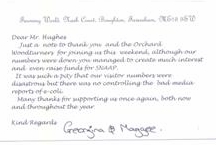 Dear Mr Hughes
Just a note to thank you and the Orchard
Woodturners for joining us this weekend, although our
numbers were down you managed to create much interest
and even raise funds for SNAAP.
It was such a pity that our visitor numbers were
disastrous but there was no controlling the bad media
reports of e-coli.
Many thanks for supporting us once again, both now
and throughout the year
Kind Regards
Georgina & Maggie.